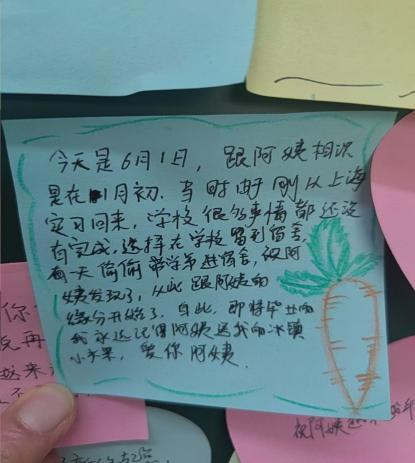 今天是6月1日，跟阿姨相识
是在1月初．当时由于刚从上海
实习回来，学校很多事情都还没
有完成，选择在学校留到宿舍，
有一天偷偷带学弟进宿舍，被阿
姨发现了，从此跟阿姨的
缘分开始了．自此，即将毕业的
我永远记得阿姨送我的冰镇
小苹果，爱你阿姨．
你
再
祝阿姨